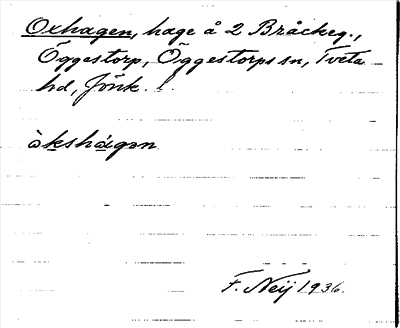 Oxhagen, hage å 2 Bråckeg.,
Öggestorp, Öggestorps sn, Tveta
hd, Jönk. l.
òkshágən
F. Neij 1936.